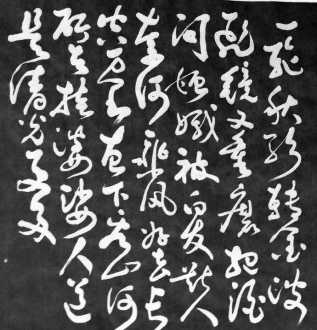 一輪秋影轉金波
飛鏡又重磨把酒
問姮娥被白髮欺人
奈何乘風好去長
空萬里直下看山河
斫去桂婆娑人道
是清光更多